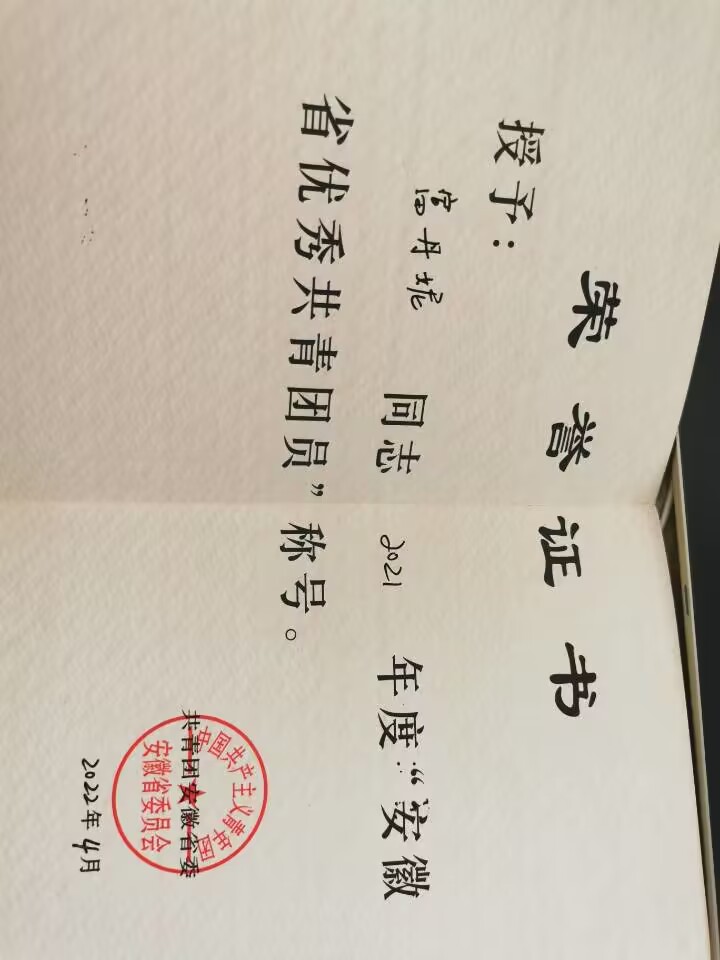 荣誉证书
授予:
富丹妮 同志 2021 年度:“安徽
省优秀共青团员”称号。
共青团安徽省委
中国共产主义青年团
安徽省委员会
2022年4月